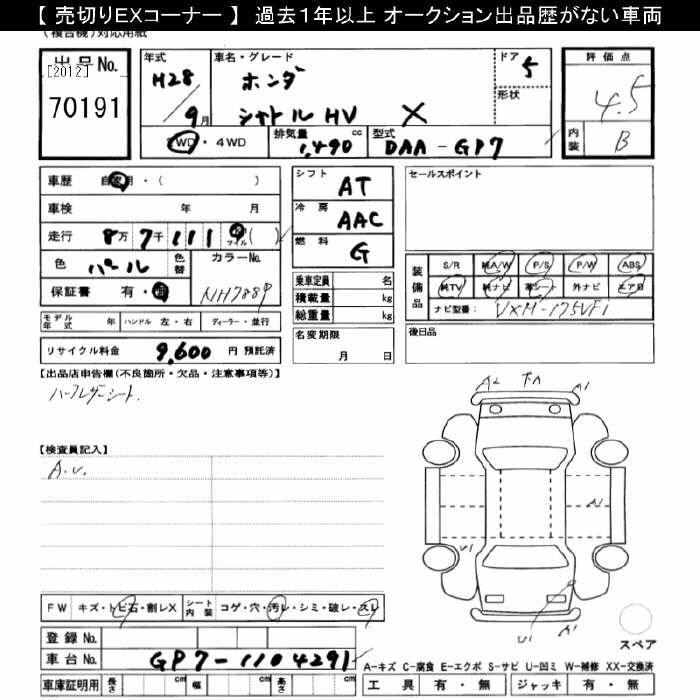 【 売切りEXコーナー 】 過去１年以上 オークション出品歴がない車両
(複合機)対応用紙
出品No.
[2012]
70191
年式 H28／9月
車名・グレード ホンダ
シャトル HV X
ドア 5
形状
2WD・4WD
排気量 1,490 cc
型式 DAA-GP7
評価点 4.5
内装 B
車歴 自家用・( )
車検 年 月
走行 8万7千111 マイル( )
色 パール 色替
カラーNo. NH788P
保証書 有・無
モデル年式 年 ハンドル 左・右 ディーラー・並行
リサイクル料金 9,600 円 預託済
シフト AT
冷房 AAC
燃料 G
乗車定員 名
積載量 kg
総重量 kg
名変期限
月 日
セールスポイント
装備品 S/R 純A/W P/S P/W ABS
純TV 純ナビ 革シート 外ナビ エアB
ナビ型番: VXM-175VFi
後日品
【出品店申告欄(不良箇所・欠品・注意事項等)】
ハーフレザーシート.
【検査員記入】
A.U.
A2 下A A1
A1
U1
U1 A1
FW キズ・トビ石・割レX シート内装 コゲ・穴・汚レ・シミ・破レ・スレ
スペア
登録No.
車台No. GP7-1104291
車庫証明用 長さ cm 幅 cm 高さ cm
A-キズ C-腐食 E-エクボ S-サビ U-凹ミ W-補修 XX-交換済
工具 有・無 ジャッキ 有・無